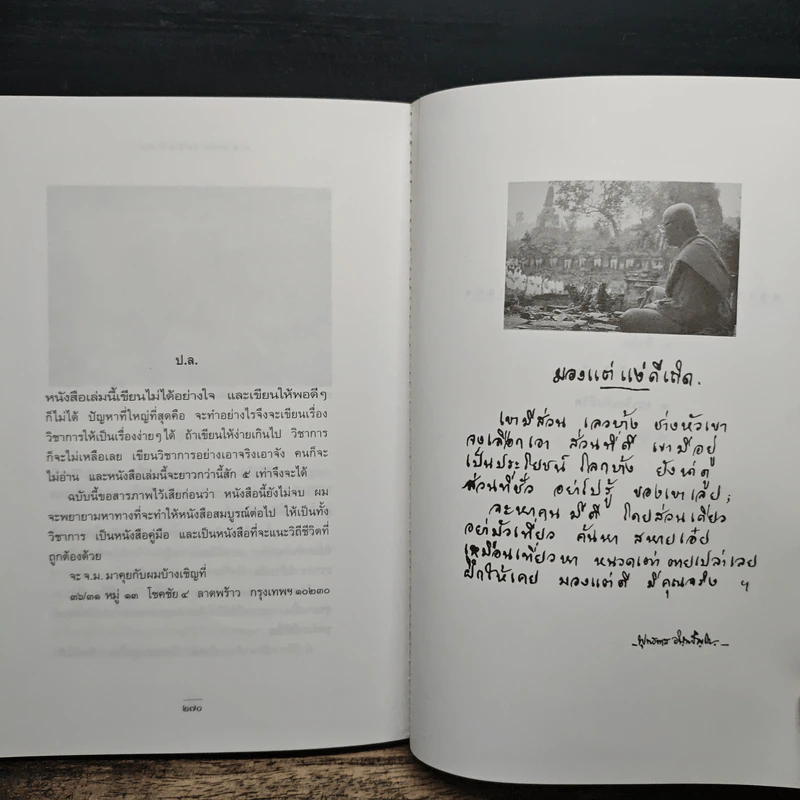 ป.ล.
หนังสือเล่มนี้เขียนไม่ได้อย่างใจ และเขียนให้พอดีๆ
ก็ไม่ได้ ปัญหาที่ใหญ่ที่สุดคือ จะทำอย่างไรจึงจะเขียนเรื่อง
วิชาการให้เป็นเรื่องง่ายๆ ได้ ถ้าเขียนให้ง่ายเกินไป วิชาการ
ก็จะไม่เหลือเลย เขียนวิชาการอย่างเอาจริงเอาจัง คนก็จะ
ไม่อ่าน และหนังสือเล่มนี้จะยาวกว่านี้สัก ๕ เท่าจึงจะได้
ฉบับนี้ขอสารภาพไว้เสียก่อนว่า หนังสือนี้ยังไม่จบ ผม
จะพยายามหาทางที่จะทำให้หนังสือสมบูรณ์ต่อไป ให้เป็นทั้ง
วิชาการ เป็นหนังสือคู่มือ และเป็นหนังสือที่จะแนะวิถีชีวิตที่
ถูกต้องด้วย
จะ จ.ม. มาคุยกับผมบ้างเชิญที่
๓๖/๓๑ หมู่ ๑๓ โชคชัย ๔ ลาดพร้าว กรุงเทพฯ ๑๐๒๓๐
๒๗๐
มองแต่ แง่ ดีเถิด.
เขามีส่วน เลวบ้าง ช่างหัวเขา
จงเลือกเอา ส่วนที่ดี เขามีอยู่
เป็นประโยชน์ โลกบ้าง ยังน่าดู
ส่วนที่ชั่ว อย่าไปรู้ ของเขาเลย;
จะหาคน มีดี โดยส่วนเดียว
อย่ามัวเที่ยว ค้นหา สหายเอ๋ย
เหมือนเที่ยวหา หนวดเต่า ตายเปล่าเลย
ฝึกให้เคย มองแต่ดี มีคุณจริง ฯ
พุทธทาส อินฺทปญฺโญ